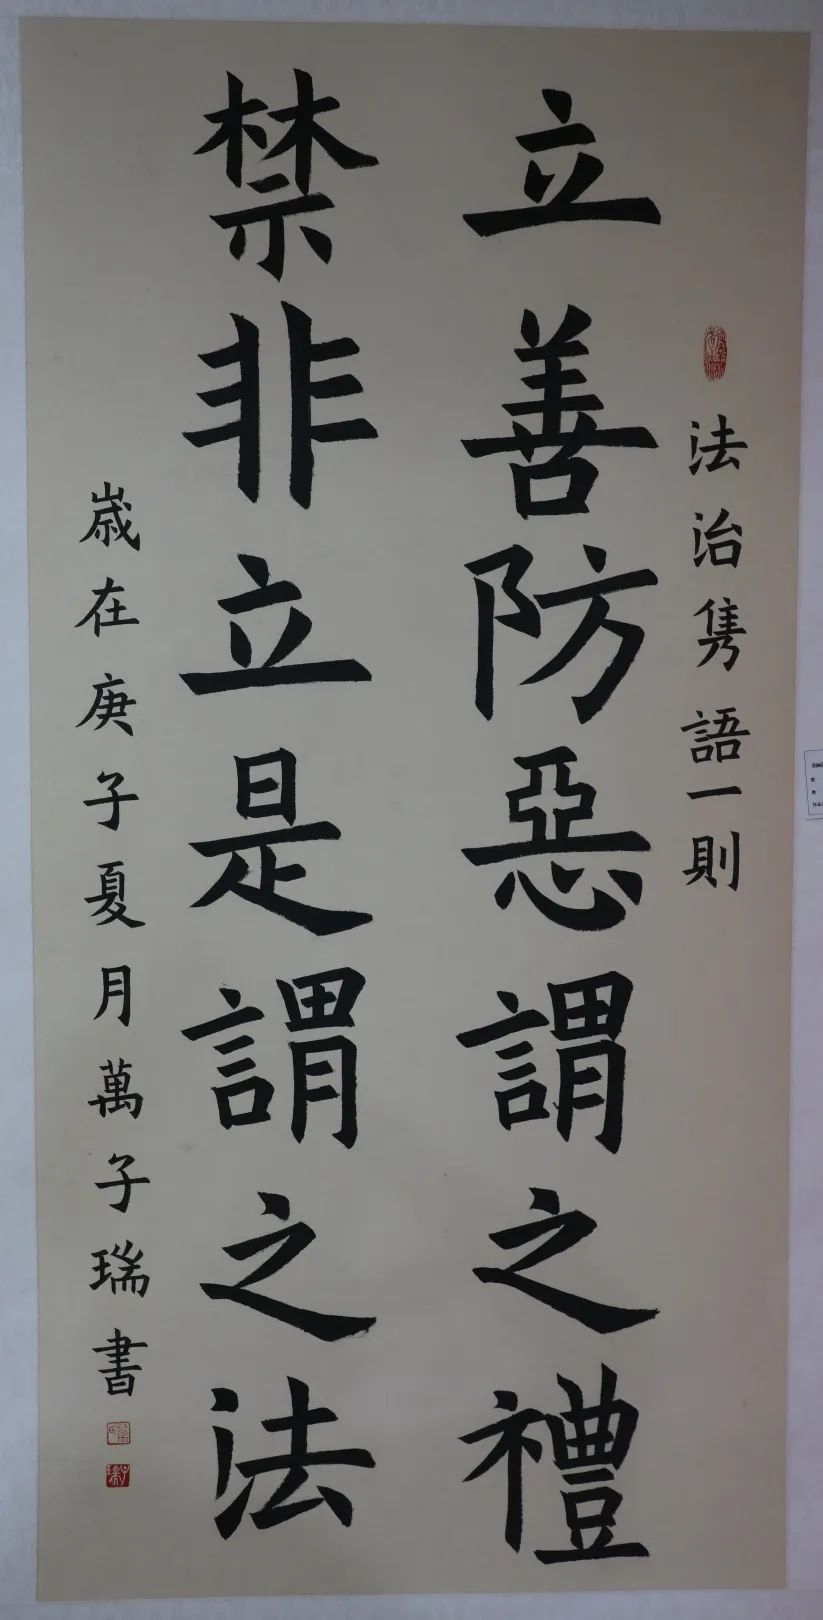 法治隽語一則
立善防惡謂之禮
禁非立是謂之法
歲在庚子夏月萬子瑞書